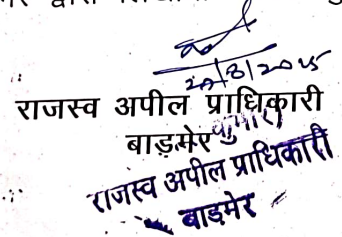 20/8/2025
राजस्व अपील प्राधिकारी
बाड़मेर
राजस्व अपील प्राधिकारी
बाडमेर